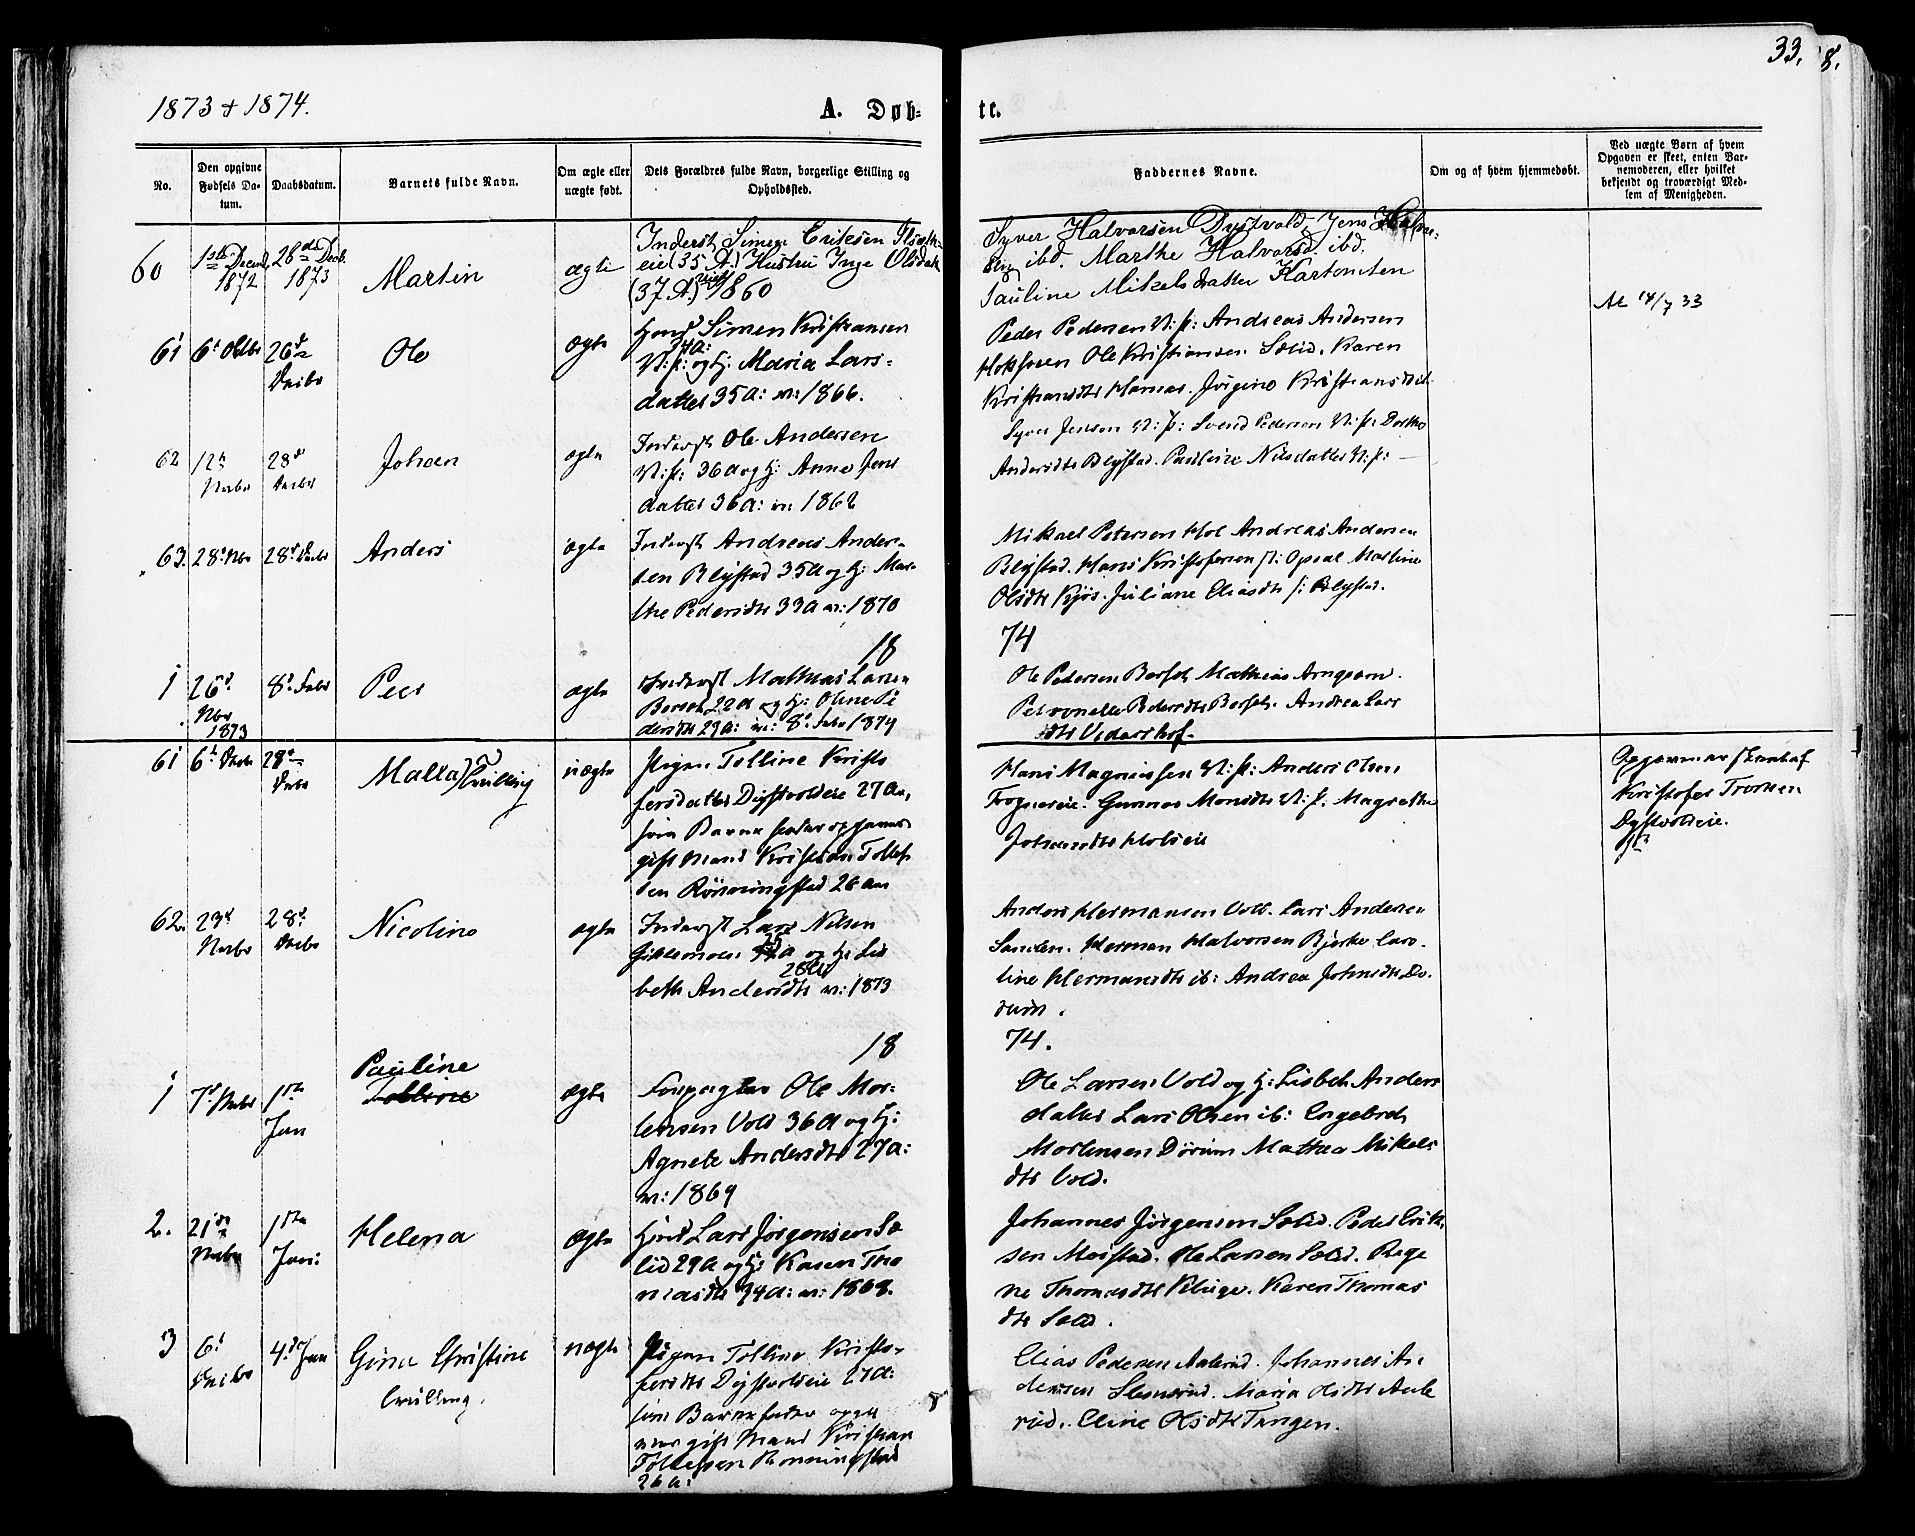 33.
8.
1873 & 1874.
A. Døb-
te.
No.
Den opgivne Fødsels Da-tum.
Daabsdatum.
Barnets fulde Navn.
Om ægte eller uægte født.
Dets Forældres fulde Navn, borgerlige Stilling og Opholdssted.
Faddernes Navne.
Om og af hvem hjemmedøbt.
Ved uægte Børn af hvem Opgaven er skeet, enten Bar-nemoderen, eller hvilket bekjendt og troværdigt Med-lem af Menigheden.
60
1ste Decemb. 1872
28de Decb. 1873
Martin
ægte
Inderst Simen Eriksen
eie (35 A.) Hustru Inge Olsdatt
(37 A.) viet 1860
Syver Halvorsen Dystvold, Jens
ibd. Marthe Halvorsd. ibd.
Pauline Mikelsdatter
At 14/7 33
61
6t Octbr
26d Decbr
Ole
ægte
Simen Kristiansen
34 a:
N: p: og H: Maria Lars-
datter 35 a: v: 1866.
Peder Pedersen N: p: Andreas Andersen
Ole Kristiansen Sælid. Karen
Kristiansdtr Jørgine Kristiansdtr
62
12te Novbr
28de Decbr
Johan
ægte
Inderst Ole Andersen
N: p: 36 a og H: Anne Jens
datter 36 a: v: 1862
Syver Jensen N: p: Svend Pedersen N: p: Dorthe
Andersdtr Blystad. Pauline Nilsdatter N: p:
63.
28d Nbr
28d Decbr
Anders
ægte
Inderst Andreas Ander-
sen Blystad 35 a og H: Mar-
the Pedersdtr 33 a v: 1870
Mikael Petersen Hol Andreas Andersen
Blystad. Hans Kristofersen Opsal Mathine
Olsdtr Kjøs. Juliane Eliasdtr Blystad.
18
74
1
26d Nbr 1873
8d Febr
Peer
ægte
Inderst Mathias Larsen
22 a og H: Oline Pe
dersdtr 29 a: v: 8d Febr 1874
Ole Pedersen Mathias
Petronelle Pedersdtr Andrea Lars
dtr Vidarshof.
61
6t Decbr
28de Decbr
Malla) Tvilling
uægte
Pigen Tolline Kristo
fersdatter Dystvoldeie 27 Aar,
som Barnefader opgivet
gift Mand Kristian Tollef-
sen Rønningstad 26 aar
Hans Magnussen N: p: Anders Olsen
Gunnor Monsdtr N: p. Magrethe
Johansdtr Holseie
Opgaven
Kristofer
Dystvoldeie.
62.
23d Novbr
28d Decbr
Nicoline
ægte
Inderst Lars Nilsen
a og H: Lis
28 a
beth Andersdtr v: 1873
Anders Hermansen Vold. Lars Andersen
Sanden. Herman Halvorsen Bjerke. Caro-
line Hermansdtr ib: Andrea Johnsdtr Do-
rum.
18
74.
1
7d Novbr
1ste Jan
Pauline
Tolline
ægte
Forpagter Ole Mor-
tensen Vold 36 a og H:
Agnete Andersdtr 27 a:
v: 1869
Ole Larsen Vold og H: Lisbeth Anders
datter Lars Olsen ib: Engebret
Mortensen Dørum Mathea Mikels
dtr Vold.
2.
21de Novbr
1ste Jan:
Helena
ægte
Lars Jørgensen Sæ
lid 29 a og H: Karen Tho
masdtr 34 a: v: 1868.
Johannes Jørgensen Sælid. Peder Erik
sen Moistad. Ole Larsen Sælid. Rege
ne Thomasdtr Karen Thomas
dtr Sælid.
3
6t Decbr
4d Jan
Gina Christine
Tvilling.
uægte
Pigen Tolline Kristo-
fersdtr Dystvoldeie 27 a:
som Barnefader opgi
ves gift Mand Kristian
Tollefsen Rønningstad
26 a:
Elias Pedersen Aalerud. Johannes An
dersen Maria Olsdtr Aale
rud. Eline Olsdtr Tangen.